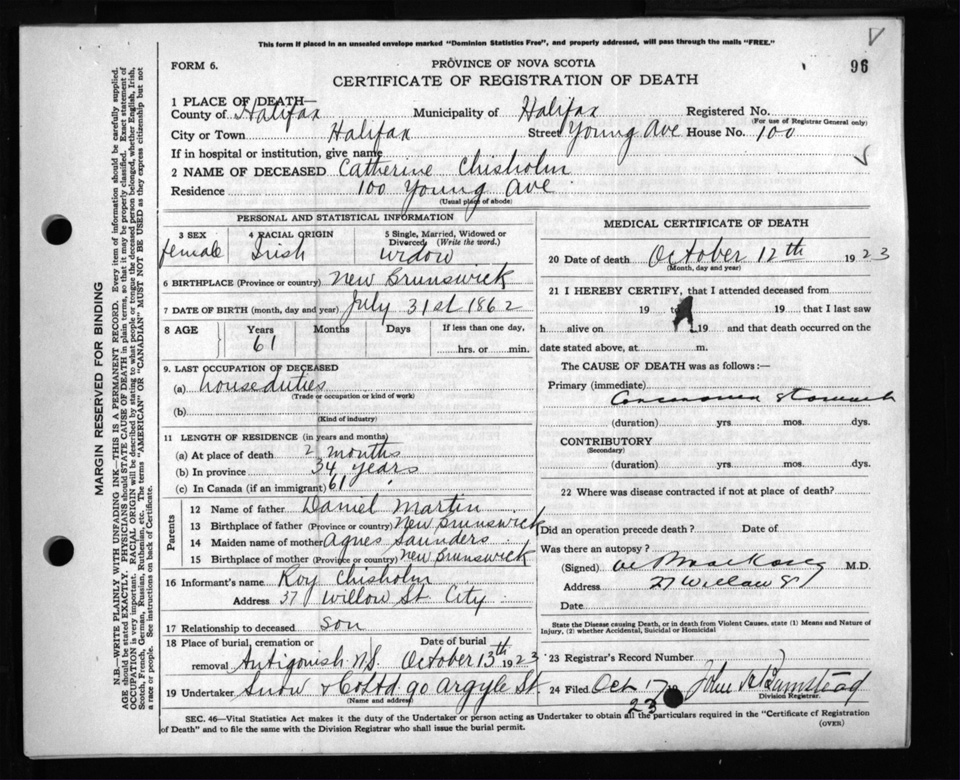 This form if placed in an unsealed envelope marked "Dominion Statistics Free", and properly addressed, will pass through the mails "FREE."
V
FORM 6.
PROVINCE OF NOVA SCOTIA
96
CERTIFICATE OF REGISTRATION OF DEATH
1 PLACE OF DEATH—
County of Halifax Municipality of Halifax Registered No.
(For use of Registrar General only)
City or Town Halifax Street Young Ave House No. 100
If in hospital or institution, give name
2 NAME OF DECEASED Catherine Chisholm
Residence 100 Young Ave
(Usual place of abode)
PERSONAL AND STATISTICAL INFORMATION
3 SEX 4 RACIAL ORIGIN 5 Single, Married, Widowed or Divorced (Write the word.)
female Irish widow
6 BIRTHPLACE (Province or country) New Brunswick
7 DATE OF BIRTH (month, day and year) July 31st 1862
8 AGE Years Months Days If less than one day,
61 hrs. or min.
9. LAST OCCUPATION OF DECEASED
(a) house duties
(Trade or occupation or kind of work)
(b)
(Kind of industry)
11 LENGTH OF RESIDENCE (in years and months)
(a) At place of death 2 months
(b) In province 34 years
(c) In Canada (if an immigrant) 61
Parents
12 Name of father Daniel Martin
13 Birthplace of father (Province or country) New Brunswick
14 Maiden name of mother Agnes Saunders
15 Birthplace of mother (Province or country) New Brunswick
16 Informant's name Roy Chisholm
Address 37 Willow St. City
17 Relationship to deceased son
18 Place of burial, cremation or removal Antigonish N.S. Date of burial October 13th 1923
19 Undertaker Snow & Co Ltd 90 Argyle St.
(Name and address)
MEDICAL CERTIFICATE OF DEATH
20 Date of death October 12th 1923
(Month, day and year)
21 I HEREBY CERTIFY, that I attended deceased from
19 to 19 that I last saw
h alive on 19 and that death occurred on
date stated above, at m.
The CAUSE OF DEATH was as follows:—
Primary (immediate)
Carcinoma Stomach
(duration) yrs. mos. dys.
CONTRIBUTORY
(Secondary)
(duration) yrs. mos. dys.
22 Where was disease contracted if not at place of death?
Did an operation precede death? Date of
Was there an autopsy?
(Signed) M.D.
Address 27 Willow St
Date
State the Disease causing Death, or in death from Violent Causes, state (1) Means and Nature of
Injury, (2) whether Accidental, Suicidal or Homicidal
23 Registrar's Record Number
24 Filed Oct 17 19 23 John
Division Registrar.
SEC. 46—Vital Statistics Act makes it the duty of the Undertaker or person acting as Undertaker to obtain all the particulars required in the "Certificate of Registration
of Death" and to file the same with the Division Registrar who shall issue the burial permit.
(OVER)
MARGIN RESERVED FOR BINDING
N.B.—WRITE PLAINLY WITH UNFADING INK—THIS IS A PERMANENT RECORD. Every item of information should be carefully supplied.
AGE should be stated EXACTLY. PHYSICIANS should STATE CAUSE OF DEATH in plain terms, so that it may be properly classified. Exact statement of
OCCUPATION is very important. RACIAL ORIGIN will be described by stating to what people or tongue the deceased person belonged, whether English, Irish,
Scotch, French, German, Russian, Ruthenian, etc. The terms "AMERICAN" OR "CANADIAN" MUST NOT BE USED as they express citizenship but not
a race or people. See instructions on back of Certificate.